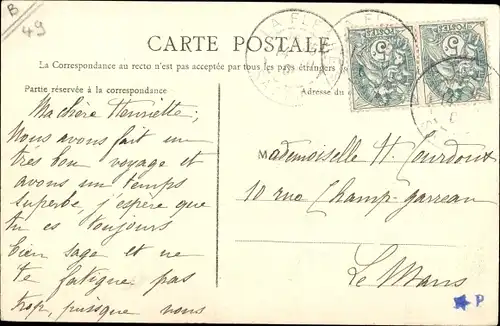 B
49
CARTE POSTALE
LA FLÈ
LA FL
POSTES
5
POSTES
5
La Correspondance au recto n'est pas acceptée par tous les pays étrangers
Partie réservée à la correspondance
Adresse du
Ma chère Henriette,
Nous avons fait un
très bon voyage et
avons un temps
superbe, j'espère que
tu es toujours
bien sage et ne
te fatigue pas
trop, puisque nous
Mademoiselle H. Courdoux
10 rue Champ-garreau
Le Mans
P